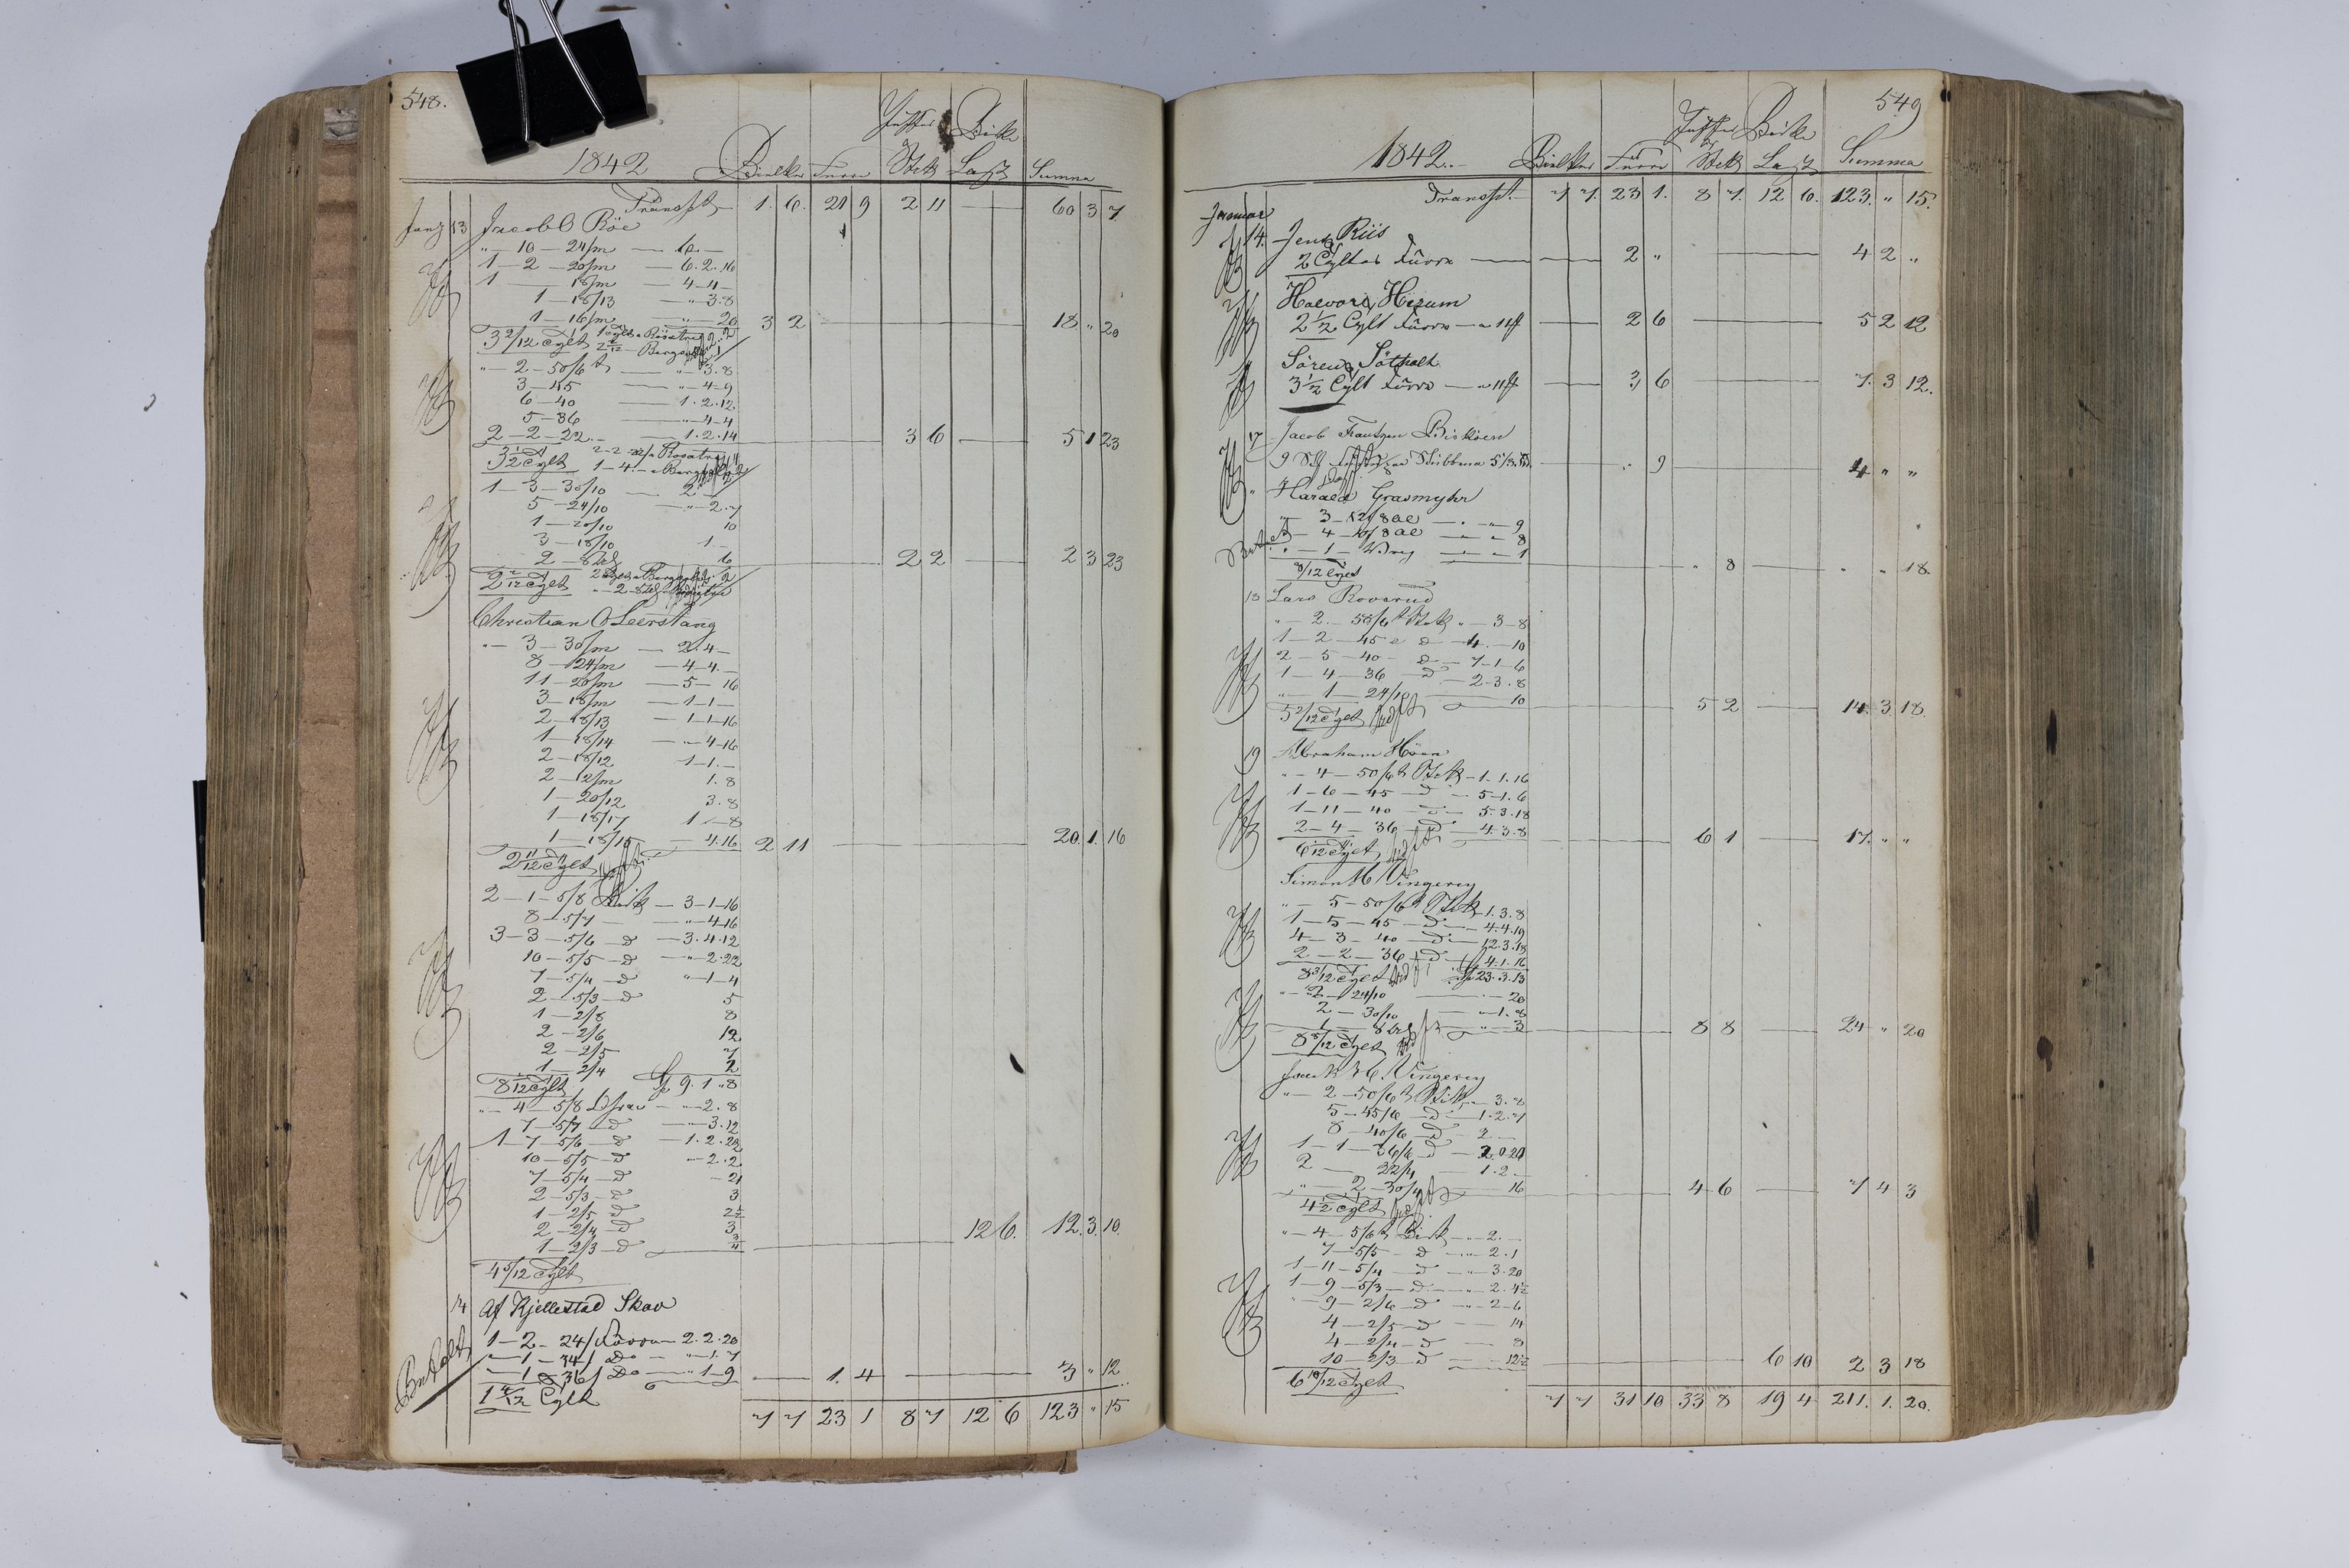 548.
1842 Bielker Furre Stk Last Summa
Transpt 1. 6. 21 9 2 11 60 3 7
13 Jacob O Röe
" 10 — 24/m — 6 —
1 — 2 — 20/m — 6. 2. 16
1 — 18/m — 4 — 4 —
1 — 18/13 — " 3. 8
1 — 16/m — " 20 3 2 18 " 20
3 2/12 Tylt
" 2 — 50/6 — " 3. 8
3 — 45 — " 4 — 9
6 — 40 — 1. 2. 12
5 — 36 — " 4 — 4
2 — 2 — 22 — 1. 2. 14 3 6 5 1 23
3 1/2 Tylt
1 — 3 — 30/10 — 2 —
5 — 24/10 — " 2. 7
1 — 20/10 10
3 — 18/10 1 —
2 — 6 2 2 2 3 23
2 2/12 Tylt
Christian O Leerstang
" 3 — 30/m — 2. 4 —
8 — 24/m — 4 — 4. —
11 — 20/m — 5 — 16
3 — 18/m — 1 — 1 —
2 — 18/13 — 1 — 1 — 16
1 — 18/14 — " 4 — 16
2 — 18/12 1 — 1. —
2 — 12/m 1. 8
1 — 20/12 3. 8
1 — 18/17 1 — 8
1 — 18/15 — 4. 16 2 11 20. 1. 16
2 11/12 Tylt
2 — 1 — 5/8 Birk — 3 — 1 — 16
8 — 5/7 — " 4 — 16
3 — 3 — 5/6 — d — 3. 4. 12
10 — 5/5 — d — " 2. 22
7 — 5/4 — d " 1 — 4
2 — 5/3 — d 5
1 — 2/8 8
2 — 2/6 12
2 — 2/5 7
1 — 2/4 2
8 1/12 Tylt 9. 1 " 8
" 4 — 5/8 — " 2. 8
7 — 5/7 — d — " 3. 12
1 — 7 — 5/6 — d — 1. 2. 22
10 — 5/5 — d — " 2. 2
7 — 5/4 — d — 21
2 — 5/3 — d 3
1 — 2/5 d 2 1/2
2 — 2/4 — d 3
1 — 2/3 — d 3/4 12 6. 12. 3. 10.
4 5/12 Tylt
14 Af Kjellestad Skov
1 — 2 — 24/ Furru — 2. 2. 20
" 1 — 34/ Do — " 1. 7
" 1 — 36/ Do — " 1 — 9 1. 4 3 " 12
1 4/12 Tylt
7 7 23 1 8 7 12 6 123 " 15
549
1842. Bielker Furre Stk Last Summa
Transpt. 7 7. 23 1. 8 7. 12 6. 123. " 15.
Januar
14. Jens Riis
2 Tylter Furru 2 " 4 2 "
Haevor Herum
2 1/2 Tylt Furru 2 6 5 2 12
Sören Sötholt
3 1/2 Tylt Furru 3 6 7. 3 12.
17 Jacob Frantzen Biskoen
" 9 4 " "
" Harald Grasmyhr
3 — 12/8 al — " 9
4 — 10/8 al — " 8
" 1 — — " 1
8/12 Tylt " 8 " " 18.
18 Lars Roverud
" 2. — 50/6 Stk " 3 — 8
1 — 2 — 45 — d — 4. — 10
2 — 5 — 40 — d — 7 — 1 — 6
1 — 4 — 36 — d — 2 — 3. 8
" 1 — 24/10 — 10 5 2 14. 3 18.
5 2/12 Tylt
19 Abraham Höen
" 4 — 50/6 Stk — 1. 1. 16
1 — 6 — 45 — d — 5 — 1. 6
1 — 11 — 40 — d — 5. 3. 18
2 — 4 — 36 — d — 4. 3. 8 6 1 17. " "
6 1/12 Tylt
Simon H Vingerey
" 5 — 50/6 Stk — 1. 3. 8
1 — 5 — 45 — d — 4. 4. 19
4 — 3 — 40 — d — 12. 3. 18
2 — 2 — 36 — d — 4. 1. 16
8 3/12 Tylt 23. 3. 13
" 2 — 24/10 — 20
2 — 30/10 — " 1. 8
1 — " 3 8 8 24 " 20
8 8/12 Tylt
H. Vingerey
" 2 — 50/6 Stk — 3. 8
5 — 45/6 — d — 1. 2. 7
8 — 40/6 — d — 2 —
1 — 1 — 36/6 — d — 2. 0 20
2 — 22/4 — 1. 2. —
" 2 — 30/4 — 16 4 6 7 4 3
4 1/2 Tylt
" 4 — 5/6 Birk — " 2. —
7 — 5/5 — d — " 2. 1
1 — 11 — 5/4 — d — " 3. 20
1 — 9 — 5/3 — d — " 2. 4 1/2
" 9 — 2/6 — d — " 2 — 6
4 — 2/5 — d — 14
4 — 2/4 — d — 8
10 — 2/3 — d — 12 1/2 6 10 2 3 18
6 10/12 Tylt
7 7 31 10 33 8 19 4 211. 1. 20.